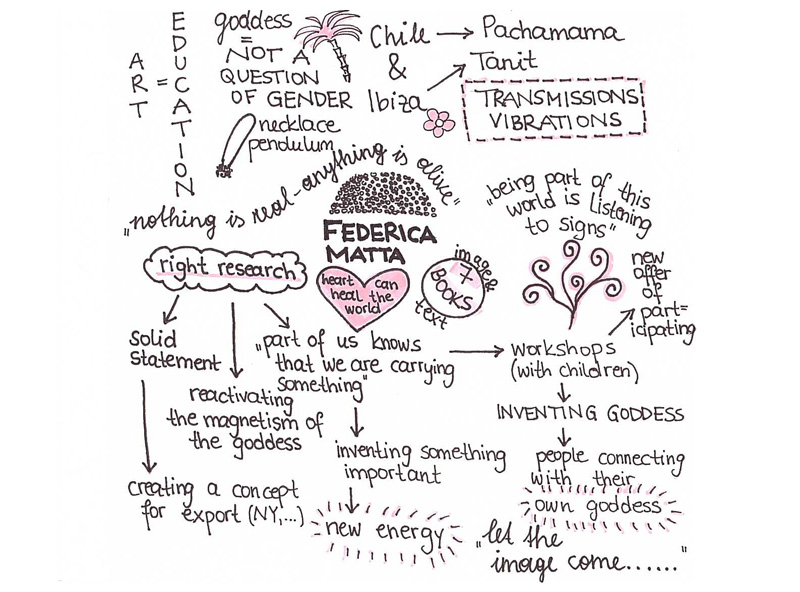 ART = EDUCATION
goddess
=
NOT A
QUESTION
OF GENDER
necklace
pendulum
Chile → Pachamama
&
Ibiza → Tanit
TRANSMISSIONS
VIBRATIONS
„nothing is real - anything is alive"
FEDERICA
MATTA
heart can
heal the
world
images
7
BOOKS
text
„being part of this
world is listening
to signs"
new
offer
of
part=
icipating
right research
solid
statement
creating a concept
for export (NY,...)
reactivating
the magnetism of
the goddess
„part of us knows
that we are carrying
something"
inventing something
important
new energy
workshops
(with children)
INVENTING GODDESS
people connecting
with their
own goddess
„let the
image come......"